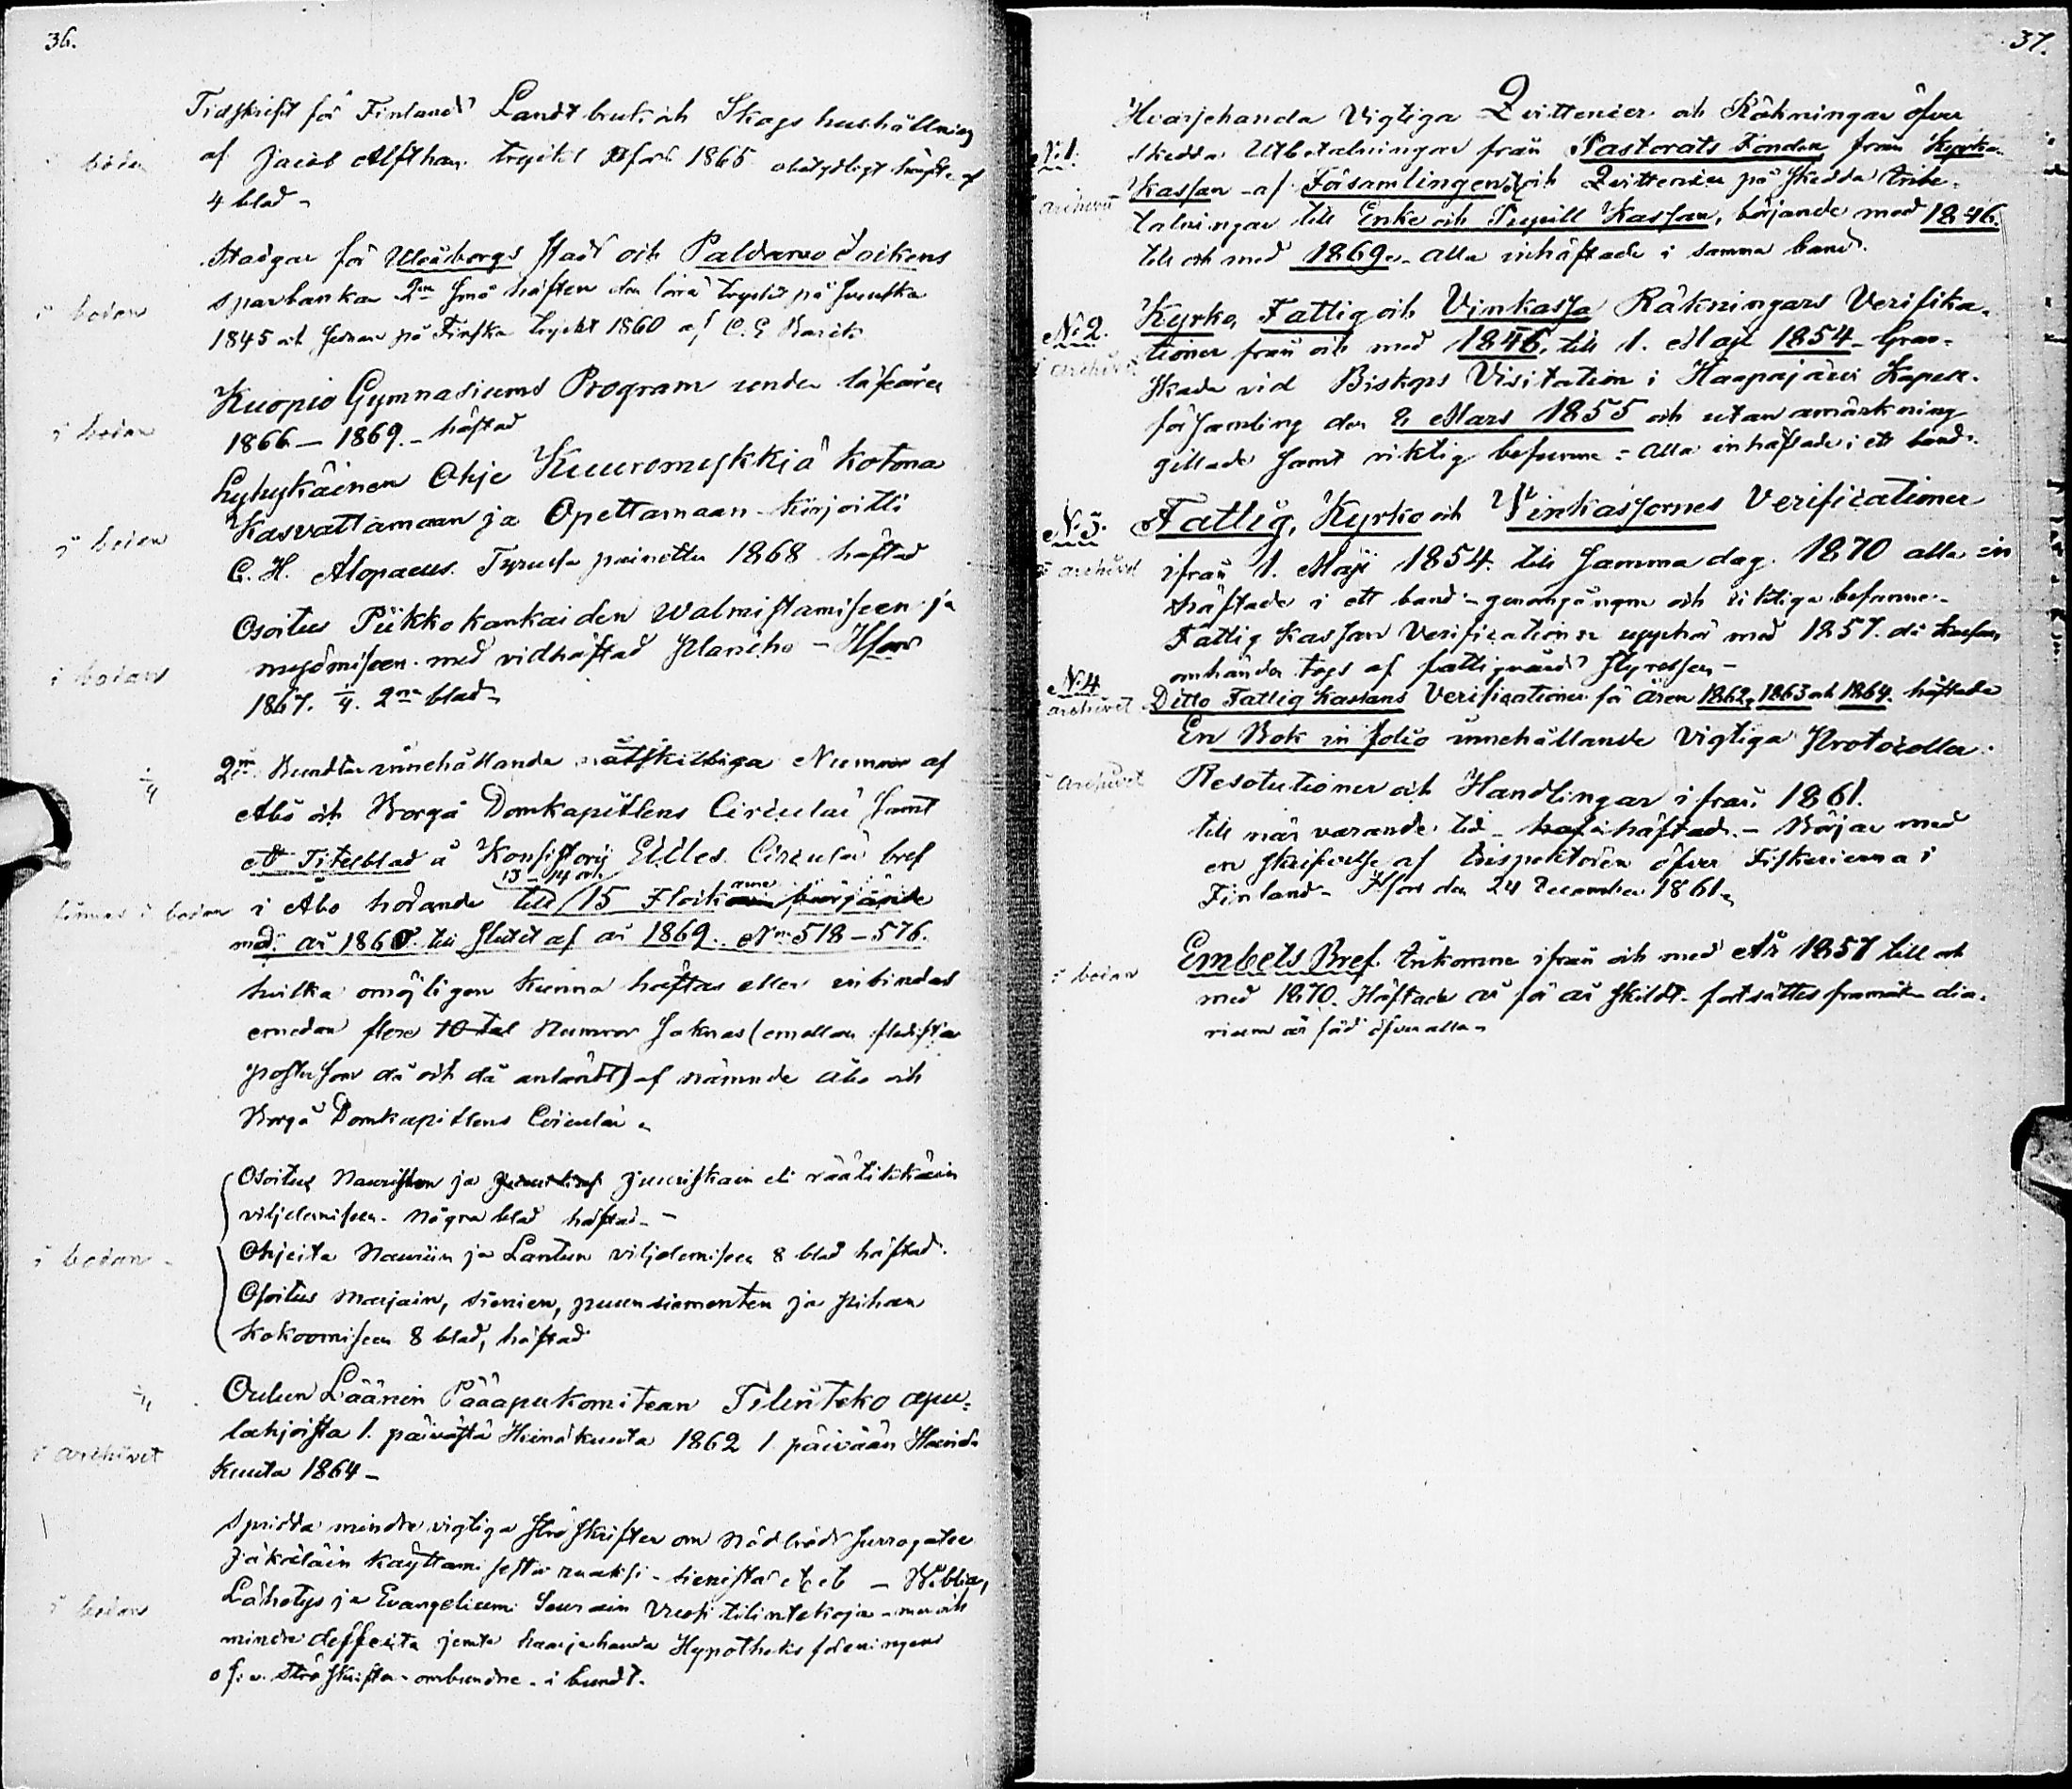 36.
Tidskrift för Finlands Landtbruk och Skogs hushållning
i bodan
af Jacob Alfthan tryckt Hfors 1865 obetydligt häfte af
4 blad -
Stadgar för Uleåborgs stad och Paldamo Sockens
i bodan
sparbankar 2ne små häften den förra tryckt på svenska
1845 och sednare på Finska tryckt 1860 af C. E Barck
Kuopio Gymnasiums Program under läseåren
i bodan
1866 - 1869. - häftad
Lyhykäinen Ohje Kuuromykkiä kotona
i bodan
Kasvattamaan ja Opettamaan - Kirjoitti
C. H. Alopaeus. Turussa painettu 1868 häftad
Osoitus Piikkokankaiden walmistamiseen ja
i bodan
myömiseen med vidhäftad Planche - Hfors
1867. 4. 2ne blad -
2ne Bundtar innehållande åtskilliga Nummer af
Åbo och Borgå Domkapitlens Circulär samt
ett Titelblad å Konsistorii Eccles. Circulär bref
13 - 14 och
finnas i bodan i Åbo hörande till 15 Flock arne börjande
med år 1860 till slutet af år 1869. No 518 - 576.
hvilka omöjligen kunna häftas eller inbindas
emedan flere 10 tal Nummer saknas (emellan
poster som då och då anländt) af nämnde Åbo och
Borgå Domkapitlens Circulär -
Osoitus Nauristen ja juuriskain eli räätikkäin
viljelemiseen. några blad häftad -
i bodan -
Ohjeita Nauriin ja Lantun viljelemiseen 8 blad häftad.
Osoitus marjain, sienien, puunsiementen ja pihan
kokoomiseen 8 blad, häftad
Oulun Läänin Pääapukomitean Tilinteko apu-
lahjoista 1. päivästä Heinäkuuta 1862 1 päivään Heinä
i archivet
kuuta 1864 -
Spridda mindre vigtiga ströskrifter om Nödbröds surrogater
Jäkäläin käyttamisestä ruaksi - sienistä etc etc - Biblia,
i bodan
Lähetys ja Evangelium Seurain Vuosi tilintekoja - mer och
mindre deffecta jemte hvarjehanda Hypotheks föreningens
o s. v. ströskrifter - ombundne - i bundt.
37.
Hvarjehanda Vigtiga Qvittencier och Räkningar öfver
No 1.
skedda Utbetalningar från Pastorats Fonden från Kyrko-
i archivet
Kassan - af Församlingen och Qvittencier på skedda Inbe-
talningar till Enke och Pupill Kassan, börjande med 1846.
till och med 1869 - alla inhäftade i samma band.
No 2.
Kyrko, Fattig och Vinkassa Räkningars Verifika-
i archivet
tioner från och med 1846, till 1. Maji 1854 - Gran-
skade vid Biskops Visitation i Haapajärvi Kapell-
församling den 2 Mars 1855 och utan anmärkning
gillade samt riktig befunne - Alla inhäftade i ett band.
No 3.
Fattig, Kyrko och Vinkassornes Verificationer
i archivet
ifrån 1. Maji 1854. till samma dag 1870 alla in
häftade i ett band - genomgångne och riktiga befunne -
Fattig Kassan Verificationer upphör med 1857. då kassan
omhänder togs af fattigvårds styrelsen -
No 4
archivet
Ditto Fattig Kassans Verificationer för åren 1862, 1863 och 1864. häftade
En Bok in folio innehållande Vigtiga Protocoller.
i archivet
Resolutioner och Handlingar ifrån 1861.
till närvarande tid - häftad. - Börjar med
en skrifvelse af Inspektoren öfver Fiskerierna i
Finland - Hfors den 24 December 1861 -
Embets Bref Inkomne ifrån och med År 1857 till och
i bodan
med 1870. Häftade år för år skildt - fortsättes framåt - dia-
rium är förd öfver alla -